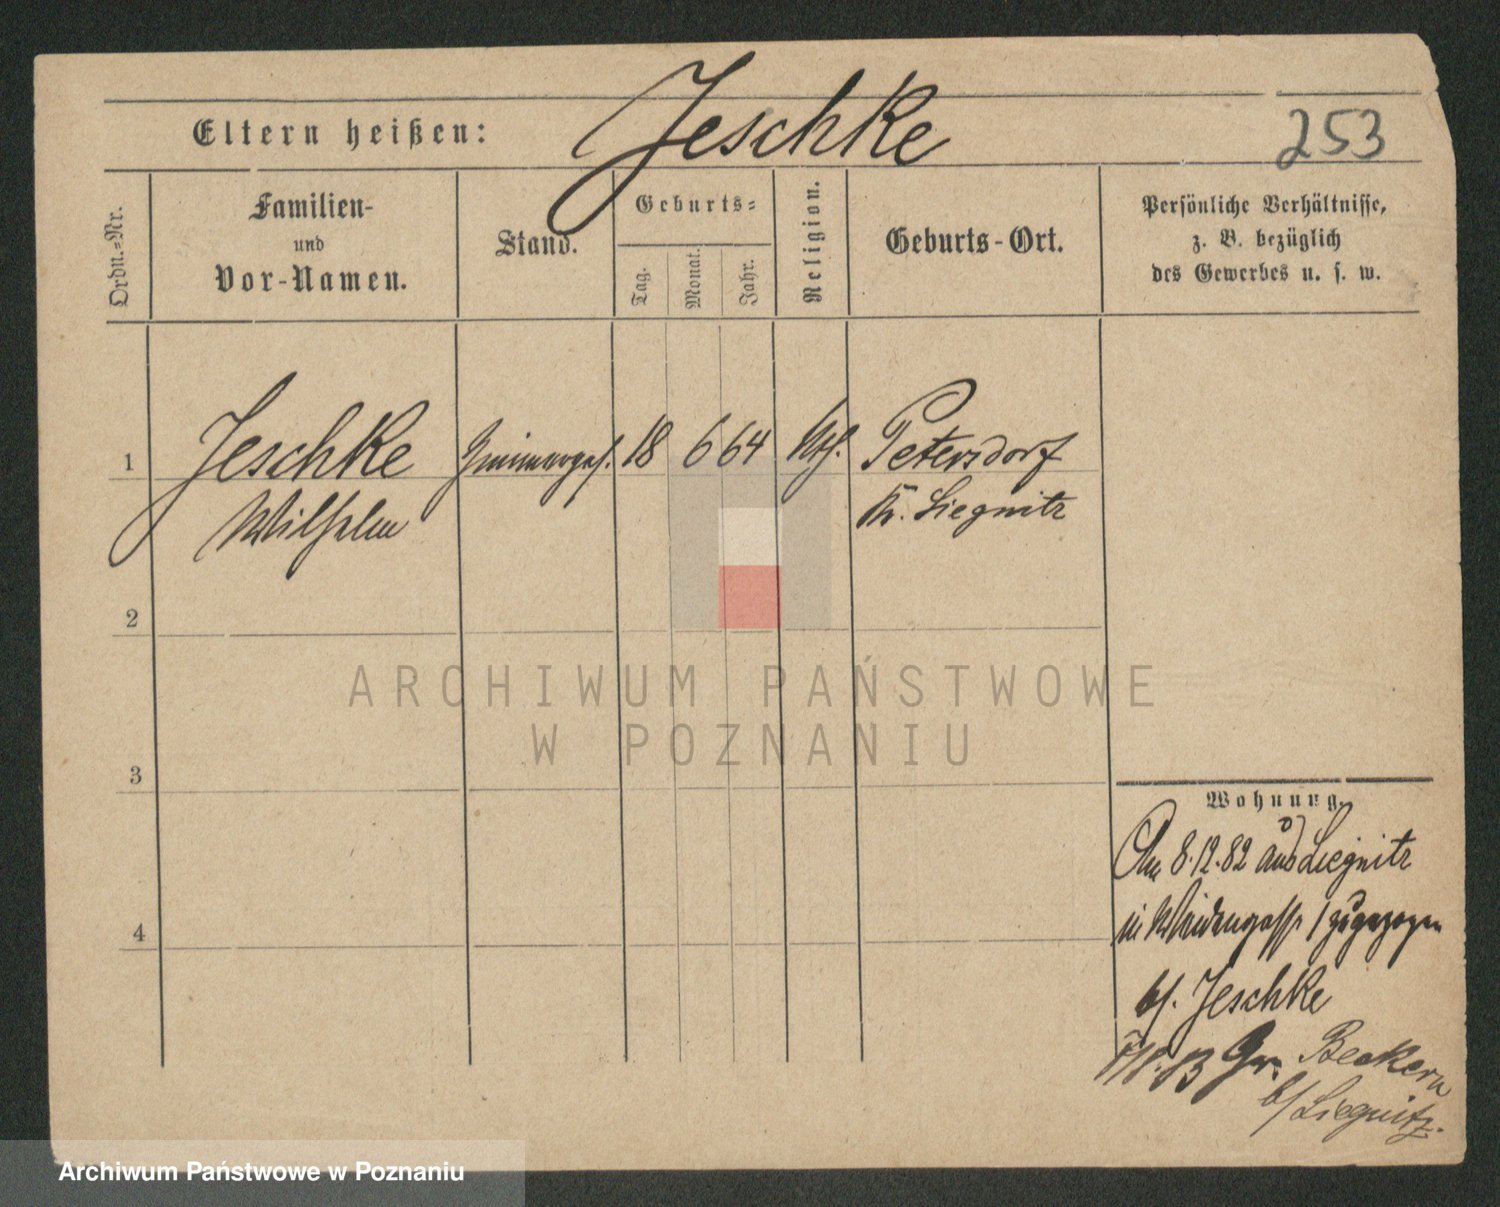 Eltern heißen: Jeschke 253
Ordn.=Nr.
Familien-
und
Vor-Namen.
Stand.
Geburts=
Tag.
Monat.
Jahr.
Religion.
Geburts-Ort.
Persönliche Verhältnisse,
z. B. bezüglich
des Gewerbes u. s. w.
1 Jeschke 18 6 64 Kth. Petersdorf
Wilhelm Kr. Liegnitz
2
3
4
Wohnung.
Am 8.12.82 aus Liegnitz
in Weidengasse 1 zugezogen
bf. Jeschke
Gr. Beckern
b/Liegnitz.
ARCHIWUM PAŃSTWOWE
W POZNANIU
Archiwum Państwowe w Poznaniu